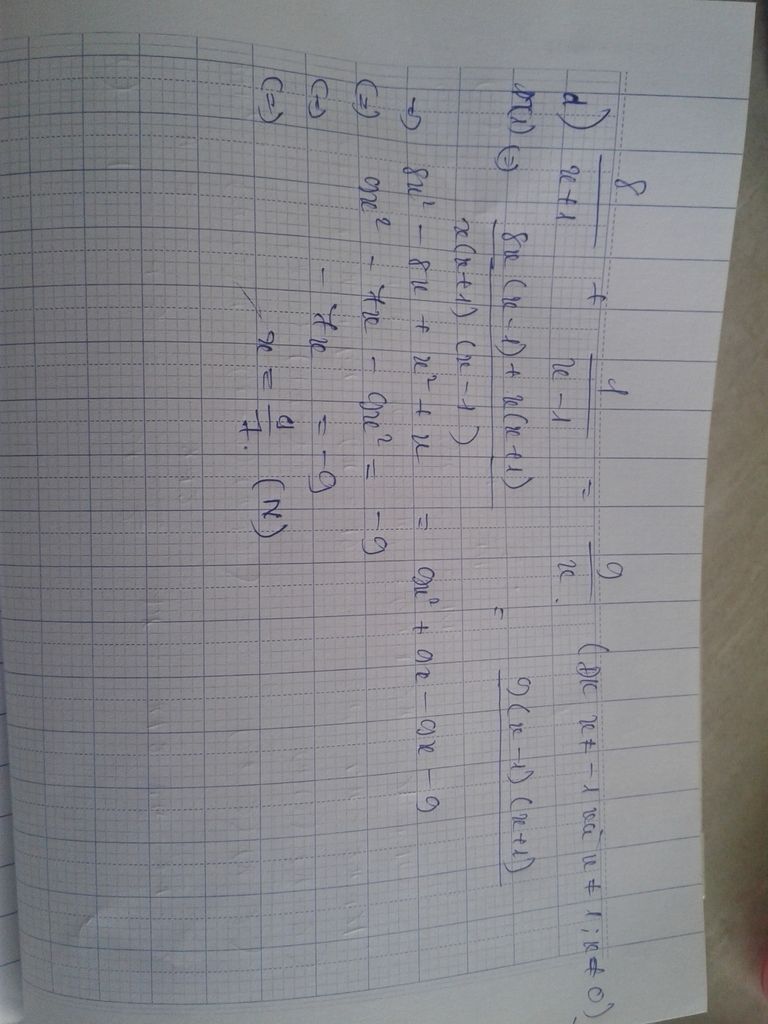 d) 8/(x+1) + 1/(x-1) = 9/x. (ĐK x ≠ -1 và x ≠ 1; x ≠ 0)
PT(1) (=) (8x(x-1) + x(x+1))/(x(x+1)(x-1)) = 9(x-1)(x+1)
8x² - 8x + x² + x = 9x² + 9x - 9x - 9
(=) 9x² - 7x - 9x² = -9
(=) - 7x = -9
(=) x = 9/7. (N)